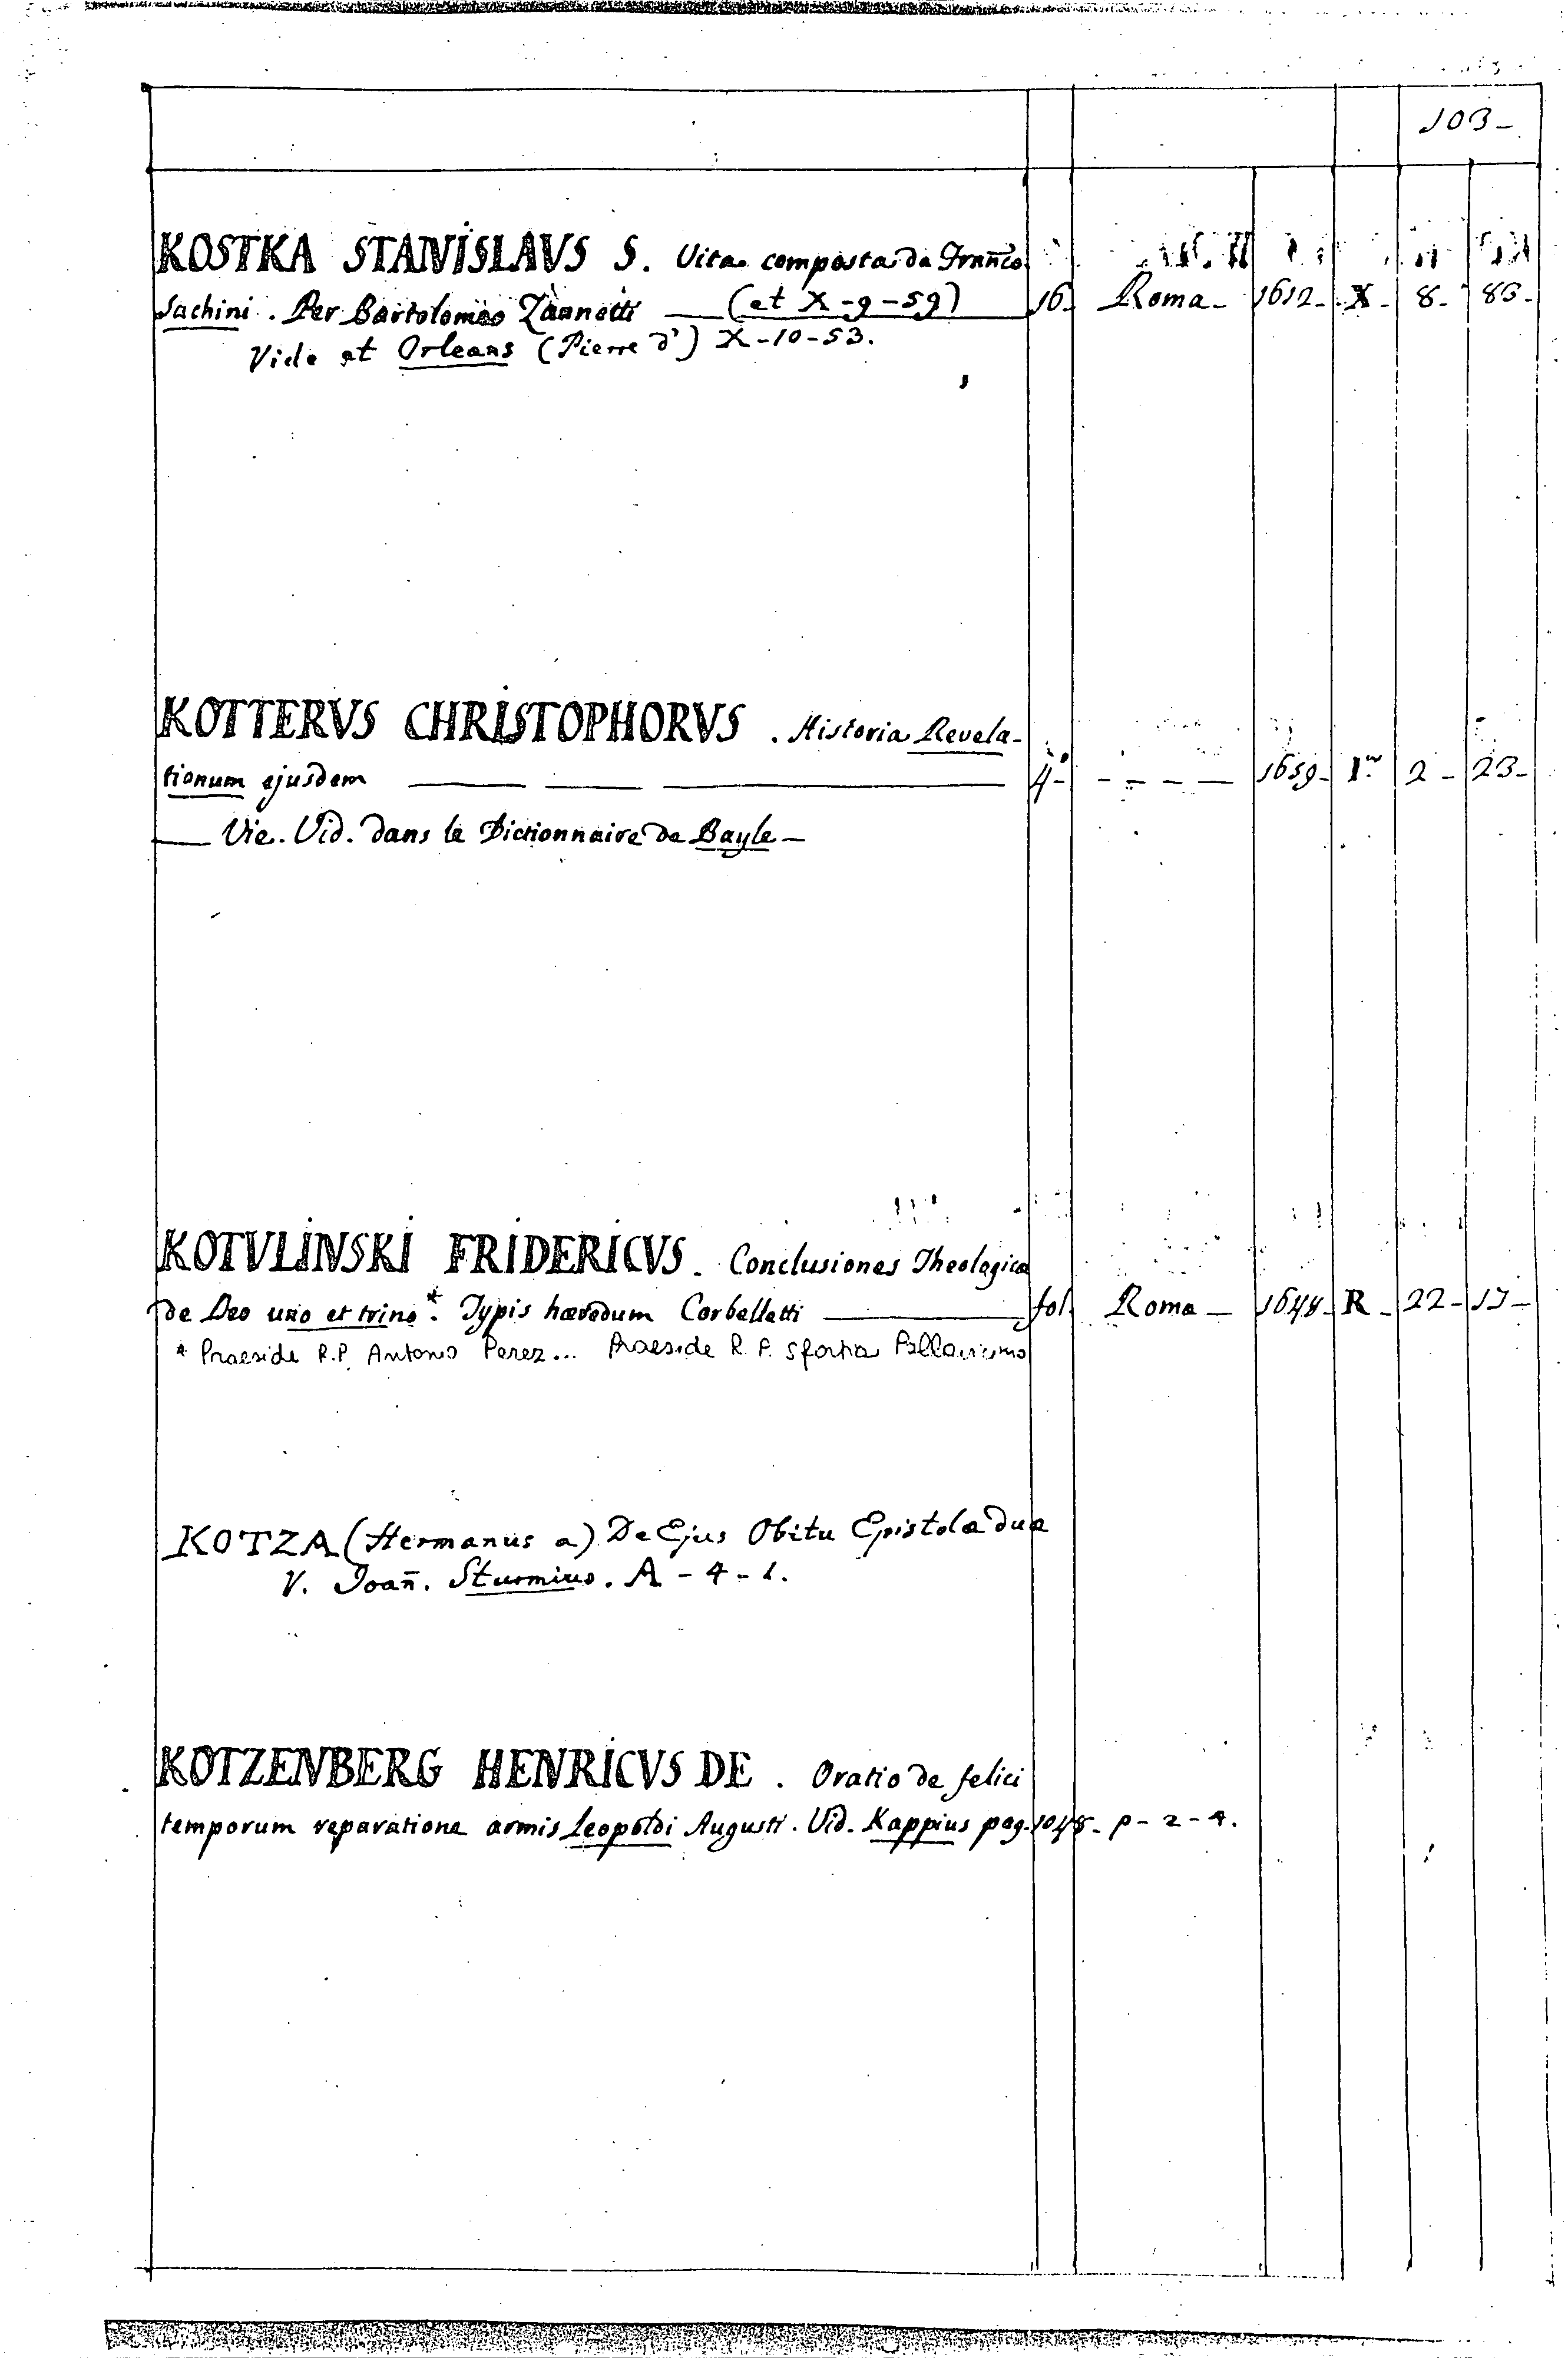 103-
KOSTKA STANISLAVS S. Vita composta da Frañco
Sachini. Per Bartolomeo Zannetti — (et X-9-59) 16. Roma- 1612- X- 8- 83-
Vide et Orleans (Pierre d') X-10-53.
KOTTERVS CHRISTOPHORVS. Historia Revela-
tionum ejusdem — — — 4- - - - - 1659- 2- 23-
— Vie. Vid. dans le Dictionnaire de Bayle—
KOTVLINSKI FRIDERICVS. Conclusiones Theologica
de Deo uno et trino*. Typis hæredum Corbelletti — fol. Roma- R- 22-
* Praeside R.P. Antonio Perez... Praeside R. P. Sfortia Pallavicino
KOTZA (Hermanus a) De Ejus Obitu Epistola dua
V. Joañ. Sturmius. A-4-1.
KOTZENBERG HENRICVS DE. Oratio de felici
temporum reparatione armis Leopoldi Augusti. Vid. Kappius pag. 1048- p-2-4.